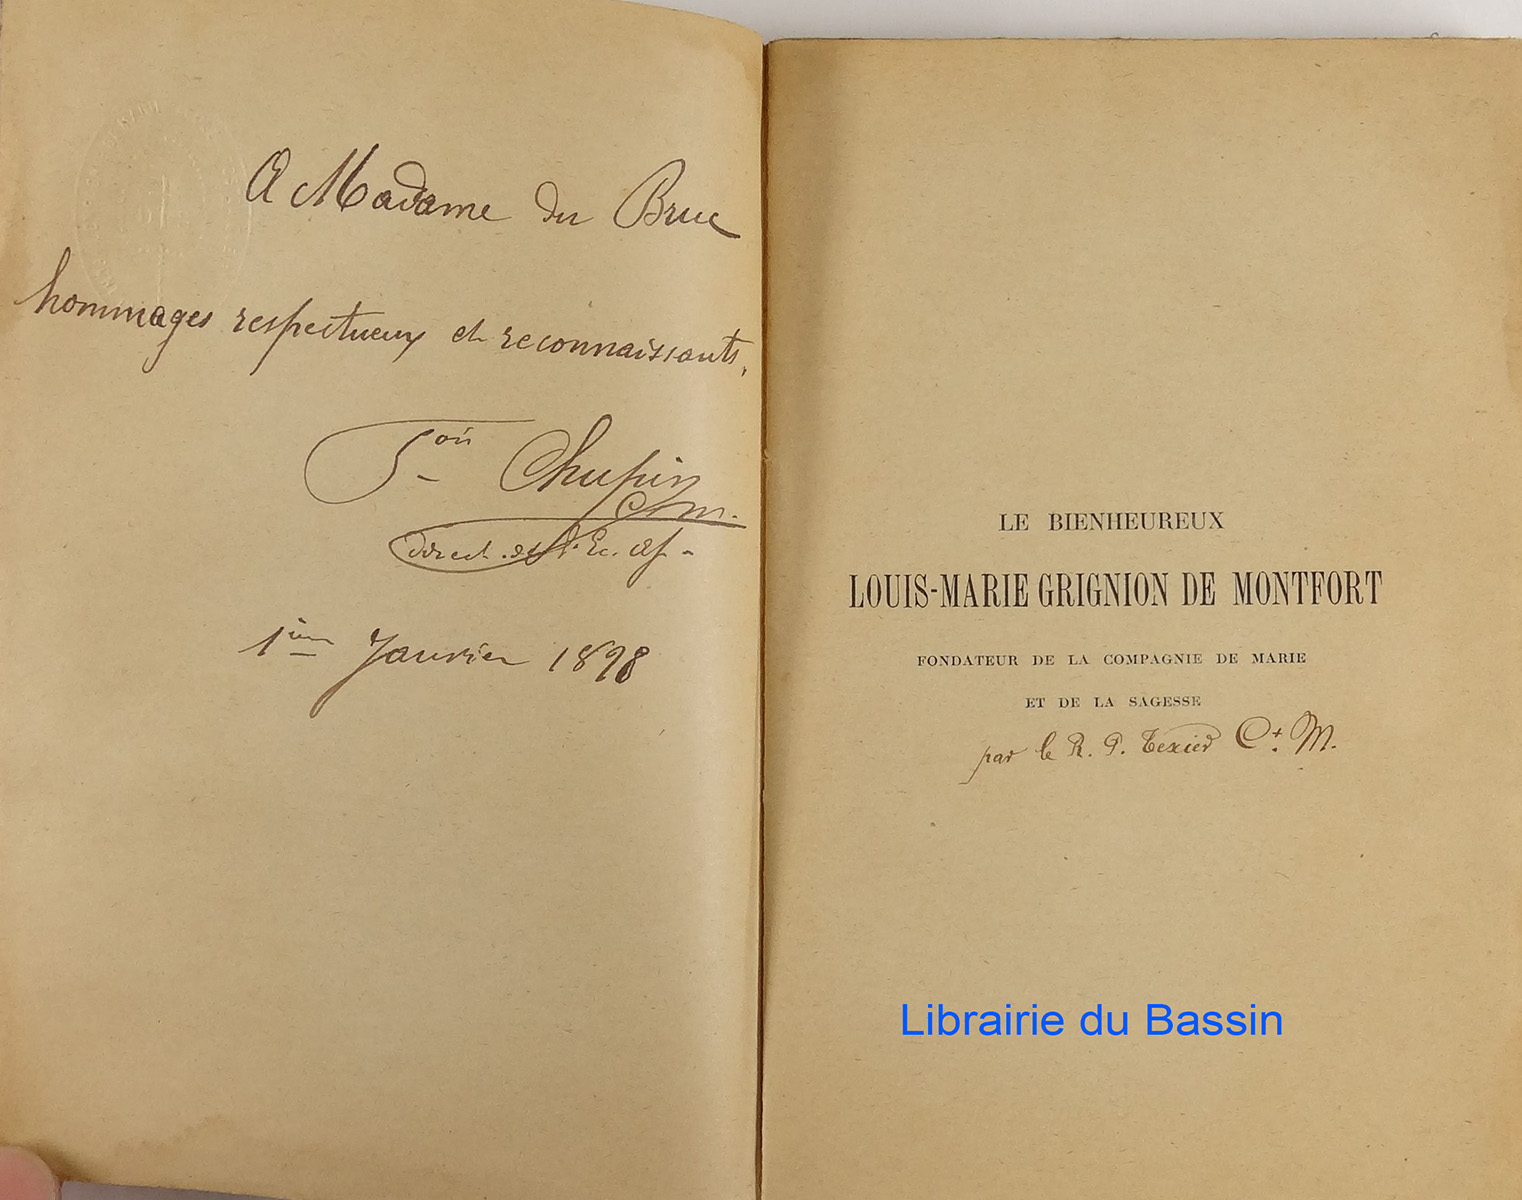 A Madame du Bruc
hommages respectueux et reconnaissants.
Chupin
C. M.
direct. de l'Ec. ap.
1ier Janvier 1898
LE BIENHEUREUX
LOUIS-MARIE GRIGNION DE MONTFORT
FONDATEUR DE LA COMPAGNIE DE MARIE
ET DE LA SAGESSE
par le R. P. Texier C. M.
Librairie du Bassin